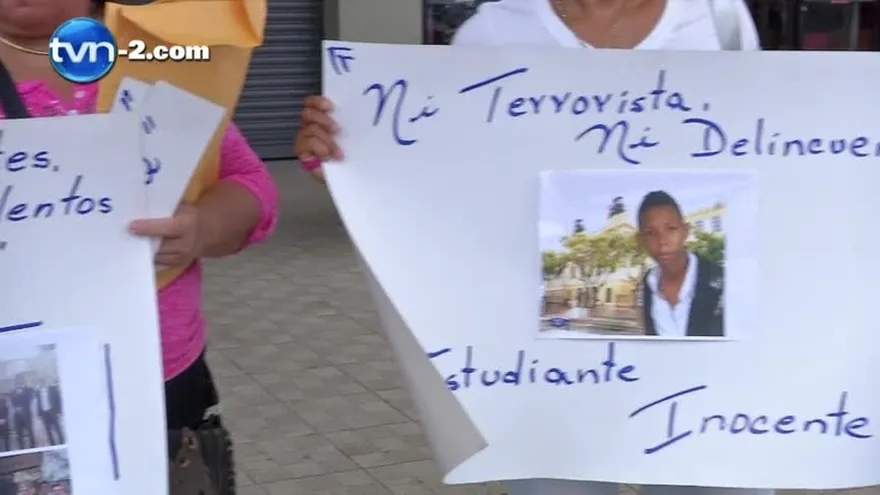 tvn-2.com
tes.
lentos
Ni Terrorista.
Ni Delincuen
Estudiante
Inocente